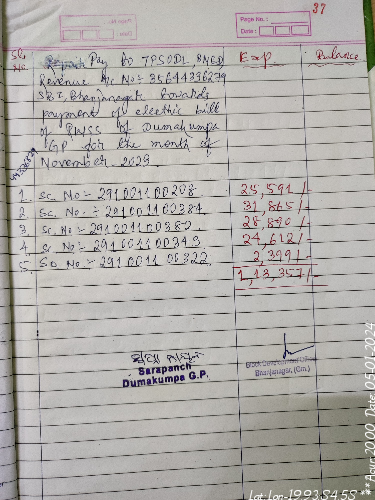 37
Page No. :
Date :
Sl. No. Pay to TPSODL, BNED, Exp. Balance
Revenue A/c No:- 35644336279
SBI, Bhanjanagar towards
payment of electric bill
of RWSS of Dumakumpa
GP for the month of
November, 2023
1. Sc. No:- 291001100208 25,591/-
2. Sc. No.:- 291001100384 31,865/-
3. Sc. No:- 291001100380
4. Sc. No:- 291001100343 24,612/-
5. Sc. No.:- 291001100322 2,399/-
1,13,357/-
Sarapanch
Dumakumpa G.P.
Bhanjanagar, (Gm.)
Lat Lon-19.93 84.58
Date 05-01-2024